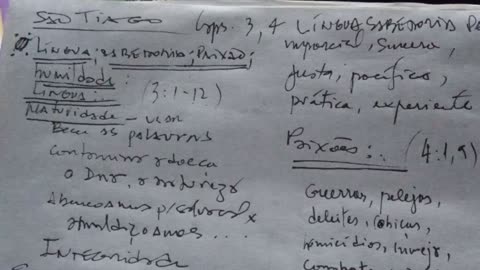 SÃO TIAGO
Caps. 3, 4
LÍNGUA, SABEDORIA, PAIXÃO;
humildade:
LÍNGUA:. (3:1-12)
Maturidade - usar
Bem as palavras
o Dnr, a natureza
Abençoamos
amaldiçoamos ...
INTEGRIDADE
LÍNGUA SABEDORIA
imparcial, sincera,
justa, pacífica,
prática, experiente
Paixões:. (4:1,9)
Guerras, pelejas,
deleites, cobiças,
homicídios, inveja,